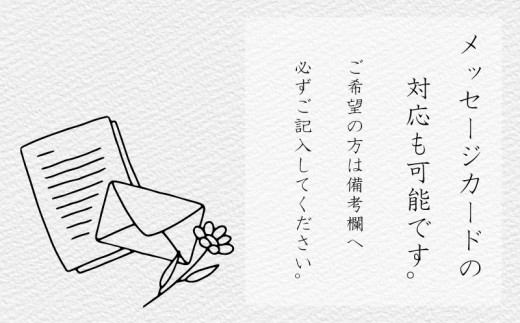 メッセージカードの
対応も可能です。
ご希望の方は備考欄へ
必ずご記入してください。